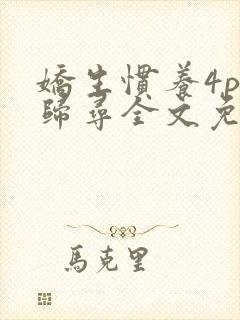 嬌生慣養4p
歸尋全文免
馬克里